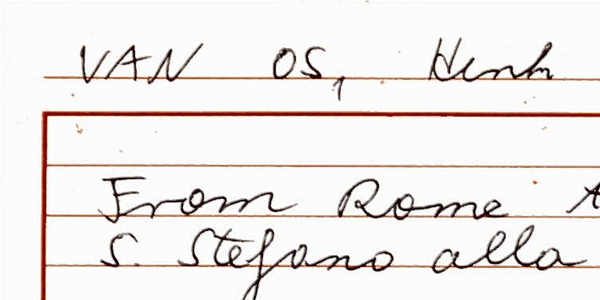 VAN OS, Henk
From Rome
S. Stefano alla